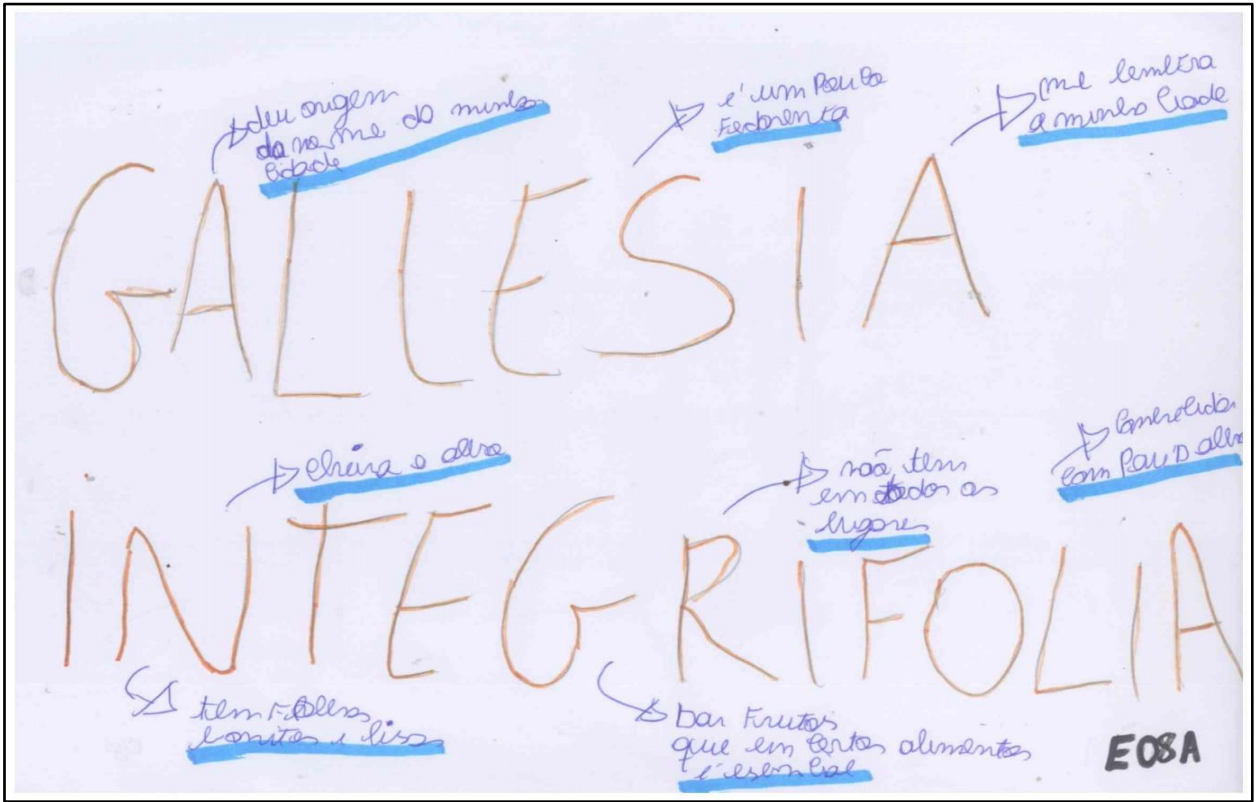 deu origem
do nome da minha
cidade
é um Pau
Fedorento
me lembra
a minha Cidade
GALLESIA
cheira a alho
não tem
em todos os
lugares
Conhecida
com Pau D alho
INTEGRIFOLIA
tem Folhas
bonitas e lisas
Dar Frutos
que em certos alimentos
é esencial
E08A